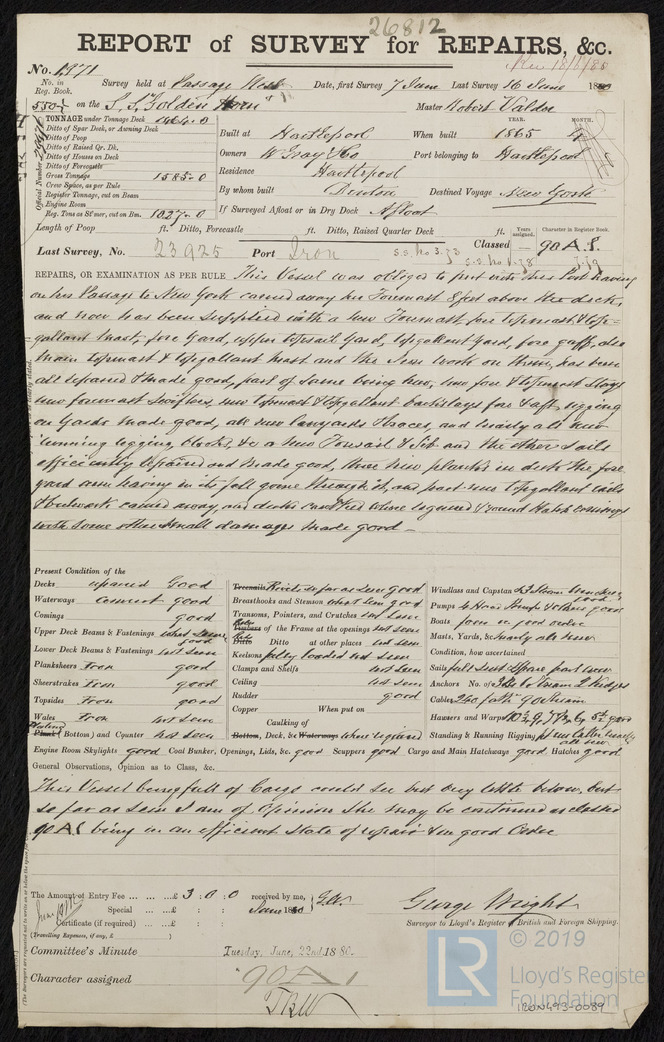 26812
REPORT of SURVEY for REPAIRS, &c.
No.
No. in Reg. Book. Survey held at Passage West Date, first Survey 7 June Last Survey 16 June 1880
550 on the S.S. Golden Horn Master Robert
TONNAGE under Tonnage Deck
Ditto of Spar Deck, or Awning Deck
Ditto of Poop
Ditto of Raised Qr. Dk.
Ditto of Houses on Deck
Ditto of Forecastle
Gross Tonnage 1585.0
Crew Space, as per Rule
Register Tonnage, cut on Beam
Engine Room
Reg. Tons as St'mer, cut on Bm. 1027.0
Official Number
YEAR. MONTH.
Built at Hartlepool When built 1865
Owners W Gray & Co Port belonging to Hartlepool
Residence Hartlepool
By whom built Denton Destined Voyage New York
If Surveyed Afloat or in Dry Dock Afloat
Length of Poop ft. Ditto, Forecastle ft. Ditto, Raised Quarter Deck ft.
Years assigned. Character in Register Book.
Last Survey, No. 23925 Port Iron s.s. No 3.73 s.s. No 1.78 Classed 90 A.1.
REPAIRS, OR EXAMINATION AS PER RULE This Vessel was obliged to put into this Port having
on her Passage to New York carried away her Foremast 8 feet above the deck,
and now has been supplied with a new Foremast, fore topmast & top-
gallant mast, fore yard, upper topsail yard, topgallant yard, fore gaff, also
main topmast & topgallant mast and the Iron work on them, has been
all repaired & made good, part of same being new, new fore & topmast stays
new foremast swifters, new topmast & topgallant backstays fore & aft, rigging
on yards made good, all new lanyards braces, and nearly all new
running rigging, blocks, &c a new Foresail & Jib and the other sails
efficiently repaired and made good, three new planks in deck the fore
yard arm having in its fall gone through it, and part new topgallant rails
& bulwark carried away, and decks caulked where required & round Hatch coamings
with some other small damages made good —
Present Condition of the
Decks repaired Good
Waterways cement good
Comings good
Upper Deck Beams & Fastenings what seen good
Lower Deck Beams & Fastenings not seen
Planksheers Iron good
Sheerstrakes Iron good
Topsides Iron good
Wales Iron not seen
Plating Plank (Bottom) and Counter not seen
Treenails Rivets so far as seen good
Breasthooks and Stemson what seen good
Transoms, Pointers, and Crutches not seen
Timbers of the Frame at the openings not seen
Ditto Ditto at other places not seen
Keelsons fully loaded not seen
Clamps and Shelfs not seen
Ceiling not seen
Rudder good
Copper When put on
Caulking of
Bottom, Deck, & Waterways where required
Windlass and Capstan & 3 Steam Winches good
Pumps good
Boats four in good order
Masts, Yards, & nearly all new
Condition, how ascertained
Sails full Suit & Spare part new
Anchors No. of 3 Bo 1 Stream 2 Kedges
Cables 240 fath
Hawsers and Warps good
Standing & Running Rigging nearly all new
Engine Room Skylights good Coal Bunker, Openings, Lids, &c. good Scuppers good Cargo and Main Hatchways good Hatches good
General Observations, Opinion as to Class, &c.
This Vessel being full of Cargo could see but very little below, but
so far as seen I am of Opinion she may be continued as classed
90 A.1. being in an efficient state of repair & in good Order
The Amount of Entry Fee ... ... ...£ 3 : 0 : 0 received by me,
Special ... ...£ : : June 1880
Certificate (if required) ... ...£ : :
(Travelling Expenses, if any, £ )
George Wright
Surveyor to Lloyd's Register of British and Foreign Shipping.
Committee's Minute Tuesday, June, 22nd 1880.
Character assigned 90 A 1
© 2019
LR
Lloyd's Register
Foundation
IRON493-0089